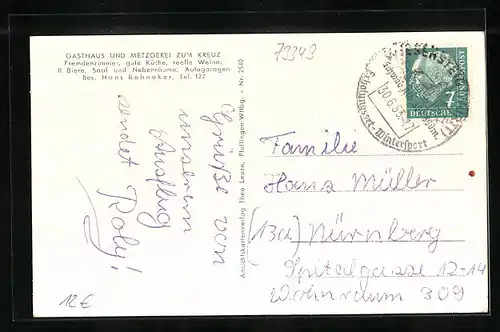 GASTHAUS UND METZGEREI ZUM KREUZ
Fremdenzimmer, gute Küche, reelle Weine,
ff. Biere, Saal und Nebenräume, Autogaragen
Bes. Hans Bohnaker, Tel. 122
Grüße von
unserem
Ausflug
sendet Roly!
12 €
Ansichtskartenverlag Theo Leuze, Pfullingen Wttbg. - Nr. 2580
79349
WIESENSTEIG
30.6.55
Wintersport
DEUTSCHE
BUNDESPOST
Familie
Hans Müller
(13a) Nürnberg
Spitalgasse 12-14
Wohnraum 309